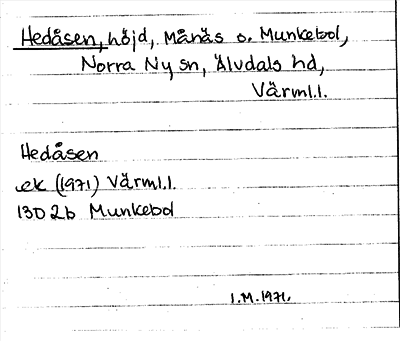 Hedåsen, höjd, Månäs o. Munkebol,
Norra Ny sn, Älvdals hd,
Värml.l.
Hedåsen
ek (1971) Värml.l.
130 2b Munkebol
I.M.1971.